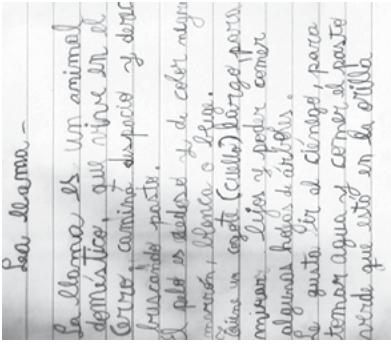 La llama -
La llama es un animal
doméstico que vive en el
Cerro camina despacio y derec
buscando pasto.
El pelo es sedoso y de color negro
marrón, blanca o beige.
Tiene un cogote (cuello) largo, para
mirar lejos y poder comer
algunas hojas de árboles.
Le gusta ir al ciénego, para
tomar agua y comer el pasto
verde que está en la orilla